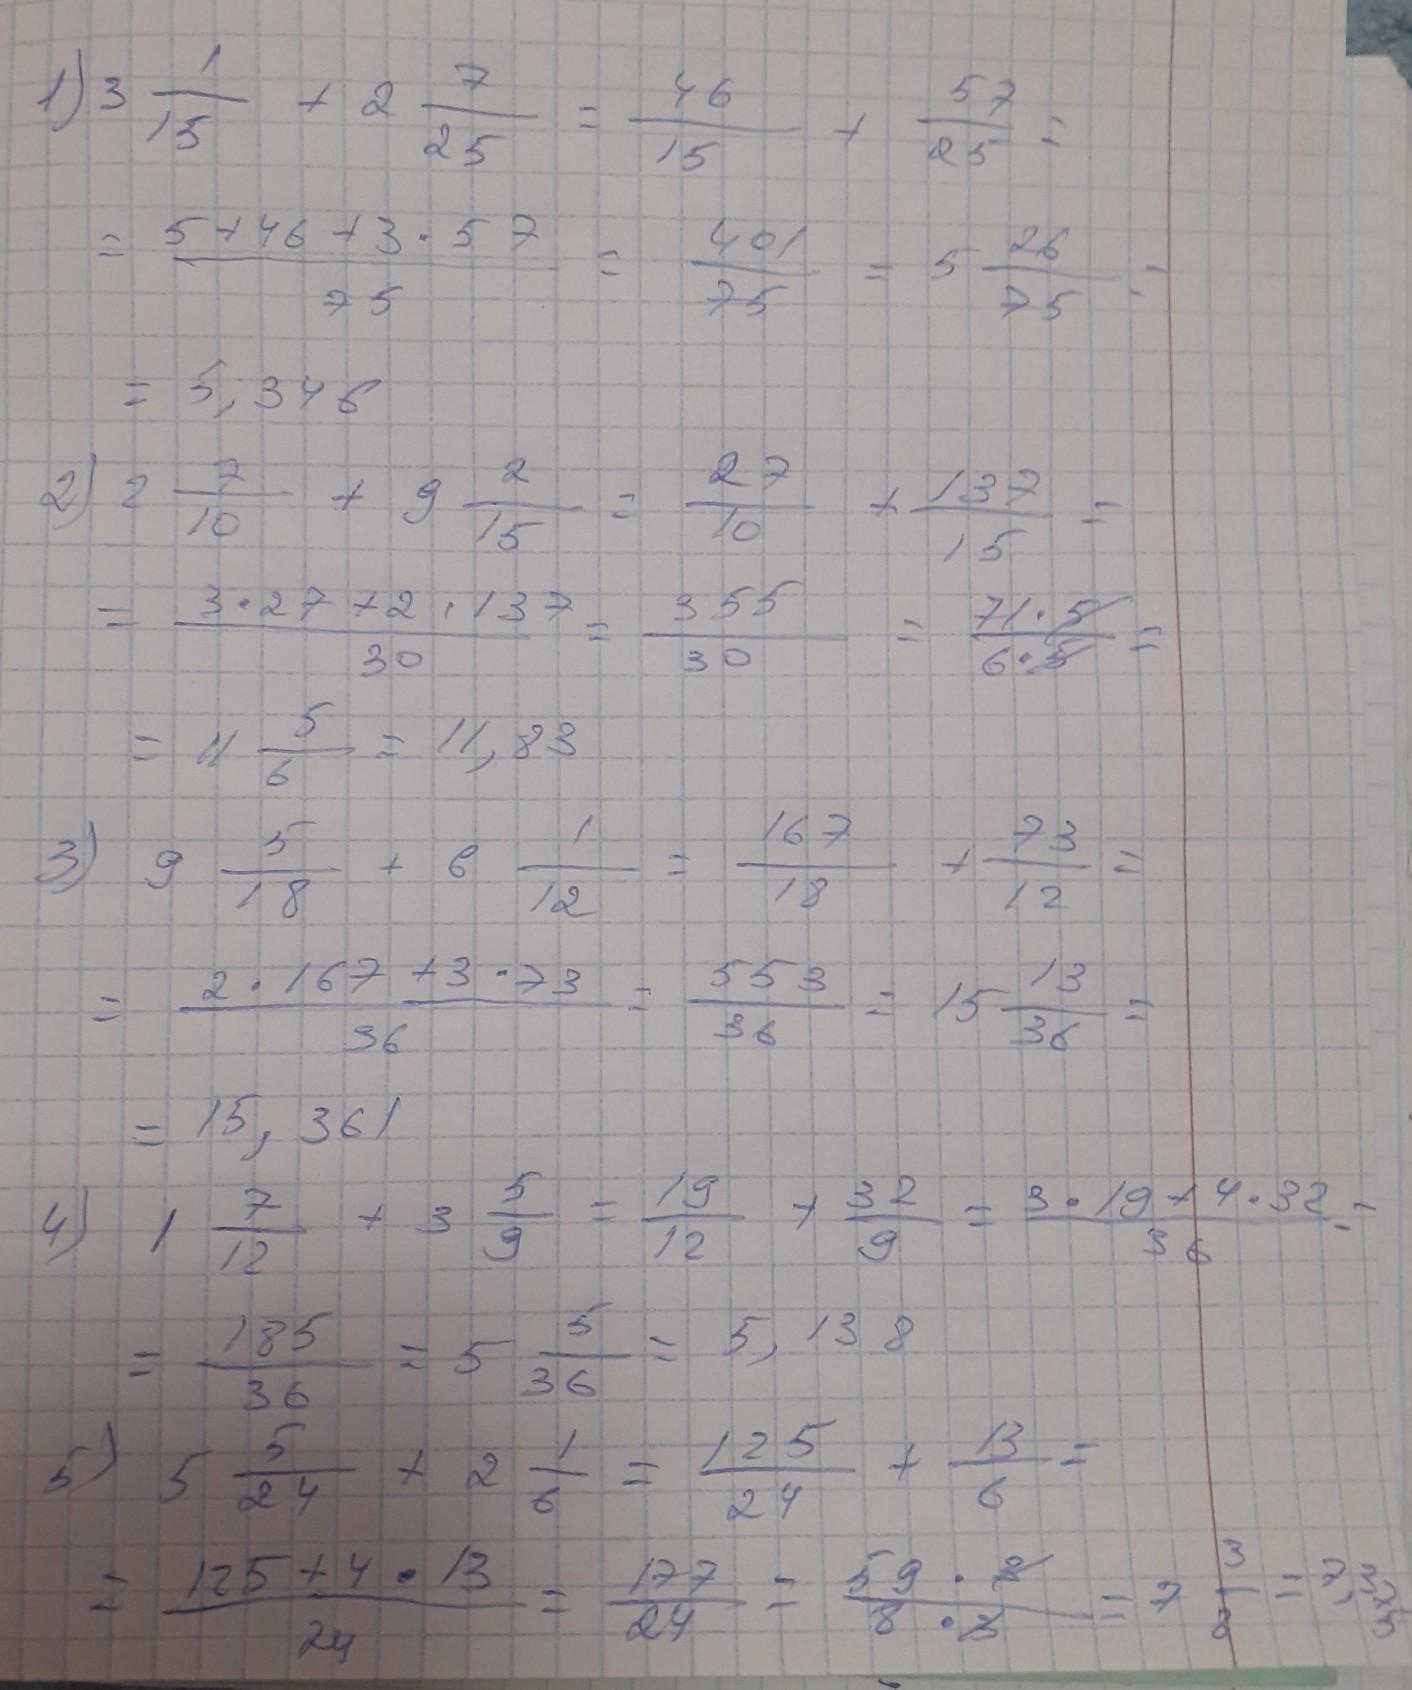 1) 3 1/15 + 2 7/25 = 46/15 + 57/25 =
= (5+46+3·57)/75 = 401/75 = 5 26/75 =
= 5,346
2) 2 7/10 + 9 2/15 = 27/10 + 137/15 =
= (3·27+2·137)/30 = 355/30 = (71·5)/(6·5) =
= 11 5/6 = 11,83
3) 9 5/18 + 6 1/12 = 167/18 + 73/12 =
= (2·167+3·73)/36 = 553/36 = 15 13/36 =
= 15,361
4) 1 7/12 + 3 5/9 = 19/12 + 32/9 = (3·19+4·32)/36 =
= 185/36 = 5 5/36 = 5,138
5) 5 5/24 + 2 1/6 = 125/24 + 13/6 =
= (125+4·13)/24 = 177/24 = (59·)/(8·3) = 7 3/8 = 7,3